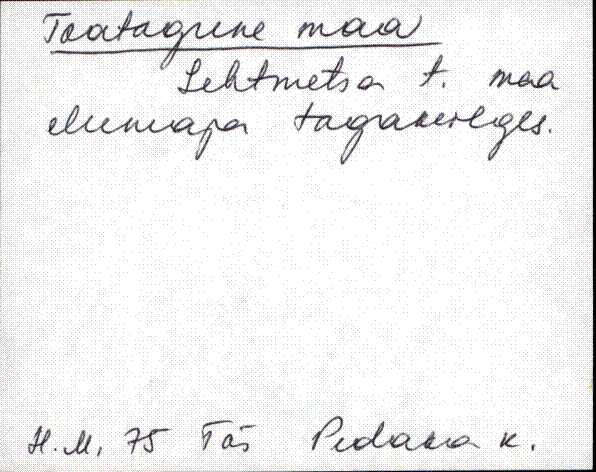 Toatagune maa
Lehtmetsa t. maa
elumaja tagakülges.
H.M. 75 Tõs Pedassa k.